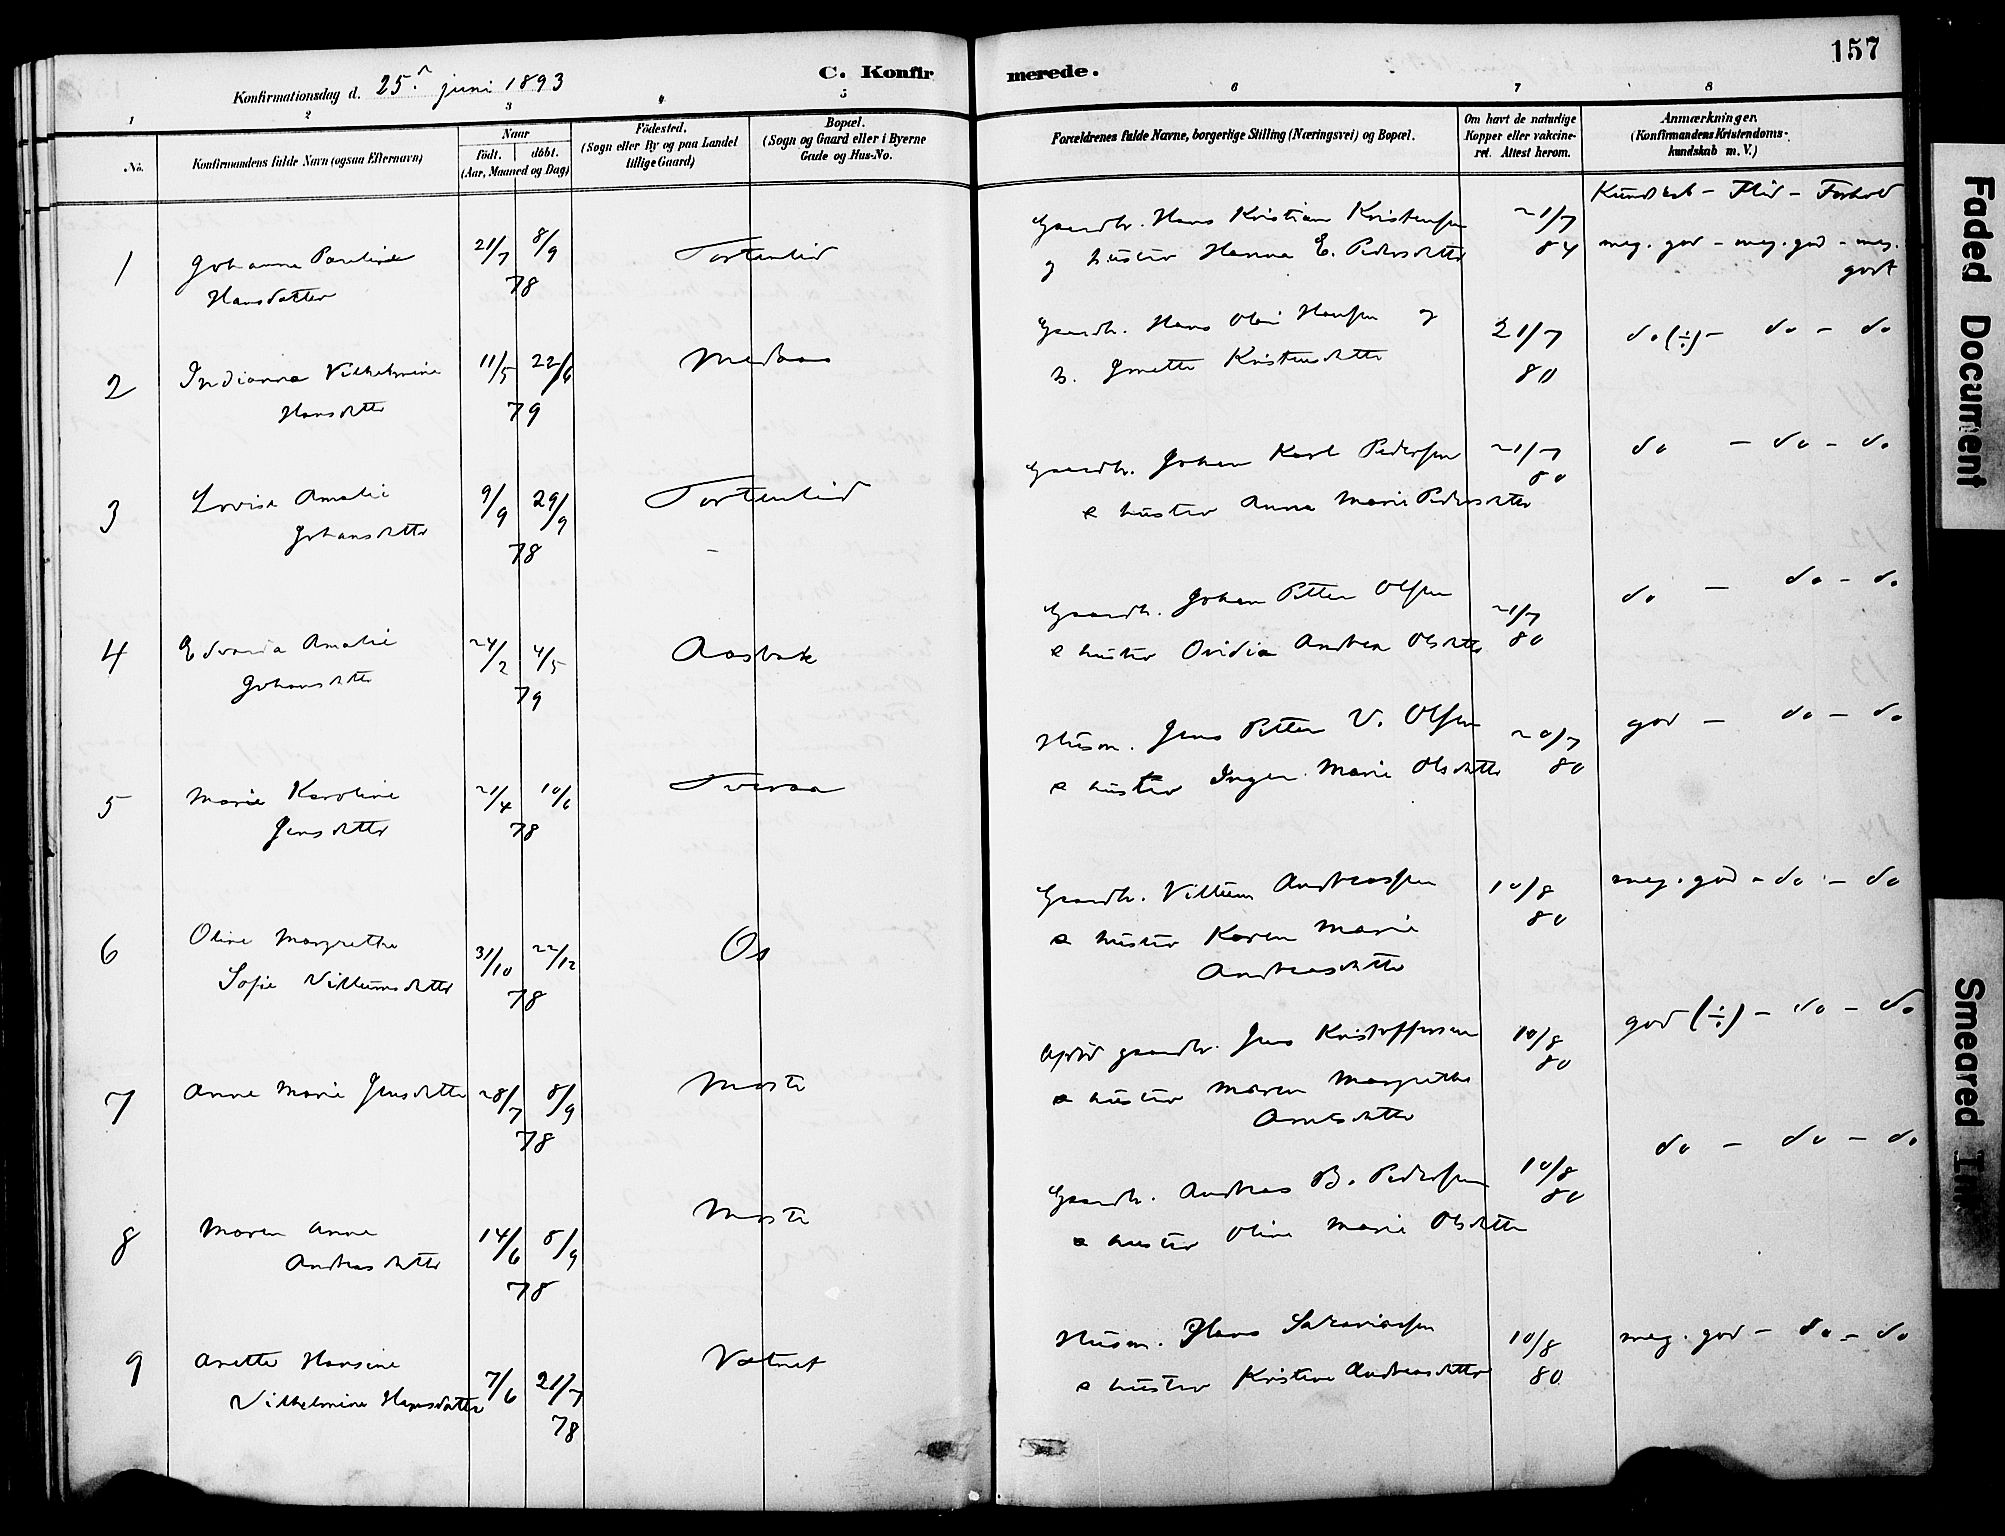 157
C. Konfirmerede.
Konfirmationsdag d. 25. juni 1893
1 2 3 4 5 6 7 8
No.
Konfirmandens fulde Navn (ogsaa Efternavn)
Naar
født. døbt.
(Aar, Maaned og Dag)
Fødested.
(Sogn eller By og paa Landet
tillige Gaard)
Bopæl.
(Sogn og Gaard eller i Byerne
Gade og Hus-No.
Forældrenes fulde Navne, borgerlige Stilling (Næringsvei) og Bopæl.
Om havt de naturlige
Kopper eller vakcine-
ret. Attest herom.
Anmærkninger
(Konfirmandens Kristendoms-
kundskab m. V.)
Kundskab – Flid – Forhold
1 Johanna Pauline 21/7 8/9 Tortenlid Gaardbr. Hans Kristian Kristensen 21/7
Hansdatter 78 og hustru Hanna E. Pedersdatter 84 meg. god – meg. god – meg.
godt
2 Indianna Vilhelmine 11/5 22/6 Medaas Gaardb. Hans Olai Hansen og 21/7 do (÷) – do – do
Hansdatter 79 h. Kristensdatter 80
3 Lovise Amalie 9/9 29/9 Tortenlid Gaardbr. Johan Karl Pedersen 21/7 do – do – do
Johansdatter 78 & hustru Anna Marie Pedersdatter 80
4 Edvarda Amalie 24/2 4/5 Aasbak Gaardb. Johan Petter Olsen 21/7 do – do – do
Johansdatter 79 & hustru Ovidia Andrea Olsdatter 80
5 Marie Karoline 21/4 10/6 Tveraa Husm. Jens Petter V. Olsen 20/7 god – do – do
Jensdatter 78 & hustru Inger Marie Olsdatter 80
6 Oline Margrethe 31/10 22/12 Os Gaardb. Villum Andreassen 10/8 meg. god – do – do
Sofie Villumsdatter 78 & hustru Karen Marie 80
Andreasdatter
7 Anne Marie Jensdatter 28/7 8/9 Moste gaardbr. Jens Kristoffersen 10/8 god (÷) – do – do
78 & hustru Maren Margrethe 80
Arntsdatter
8 Maren Anne 14/6 8/9 Moste Gaardb. Andreas B. Pedersen 10/8 do – do – do
Andreasdatter 78 & hustru Oline Marie Olsdatter 80
9 Anette Hansine 7/6 21/7 Vatnet Husm. Hans Sakariassen 10/8 meg. god – do – do
Vilhelmine Hansdatter 78 & hustru Kristine Andreasdatter 80
Faded Document
Smeared Ink